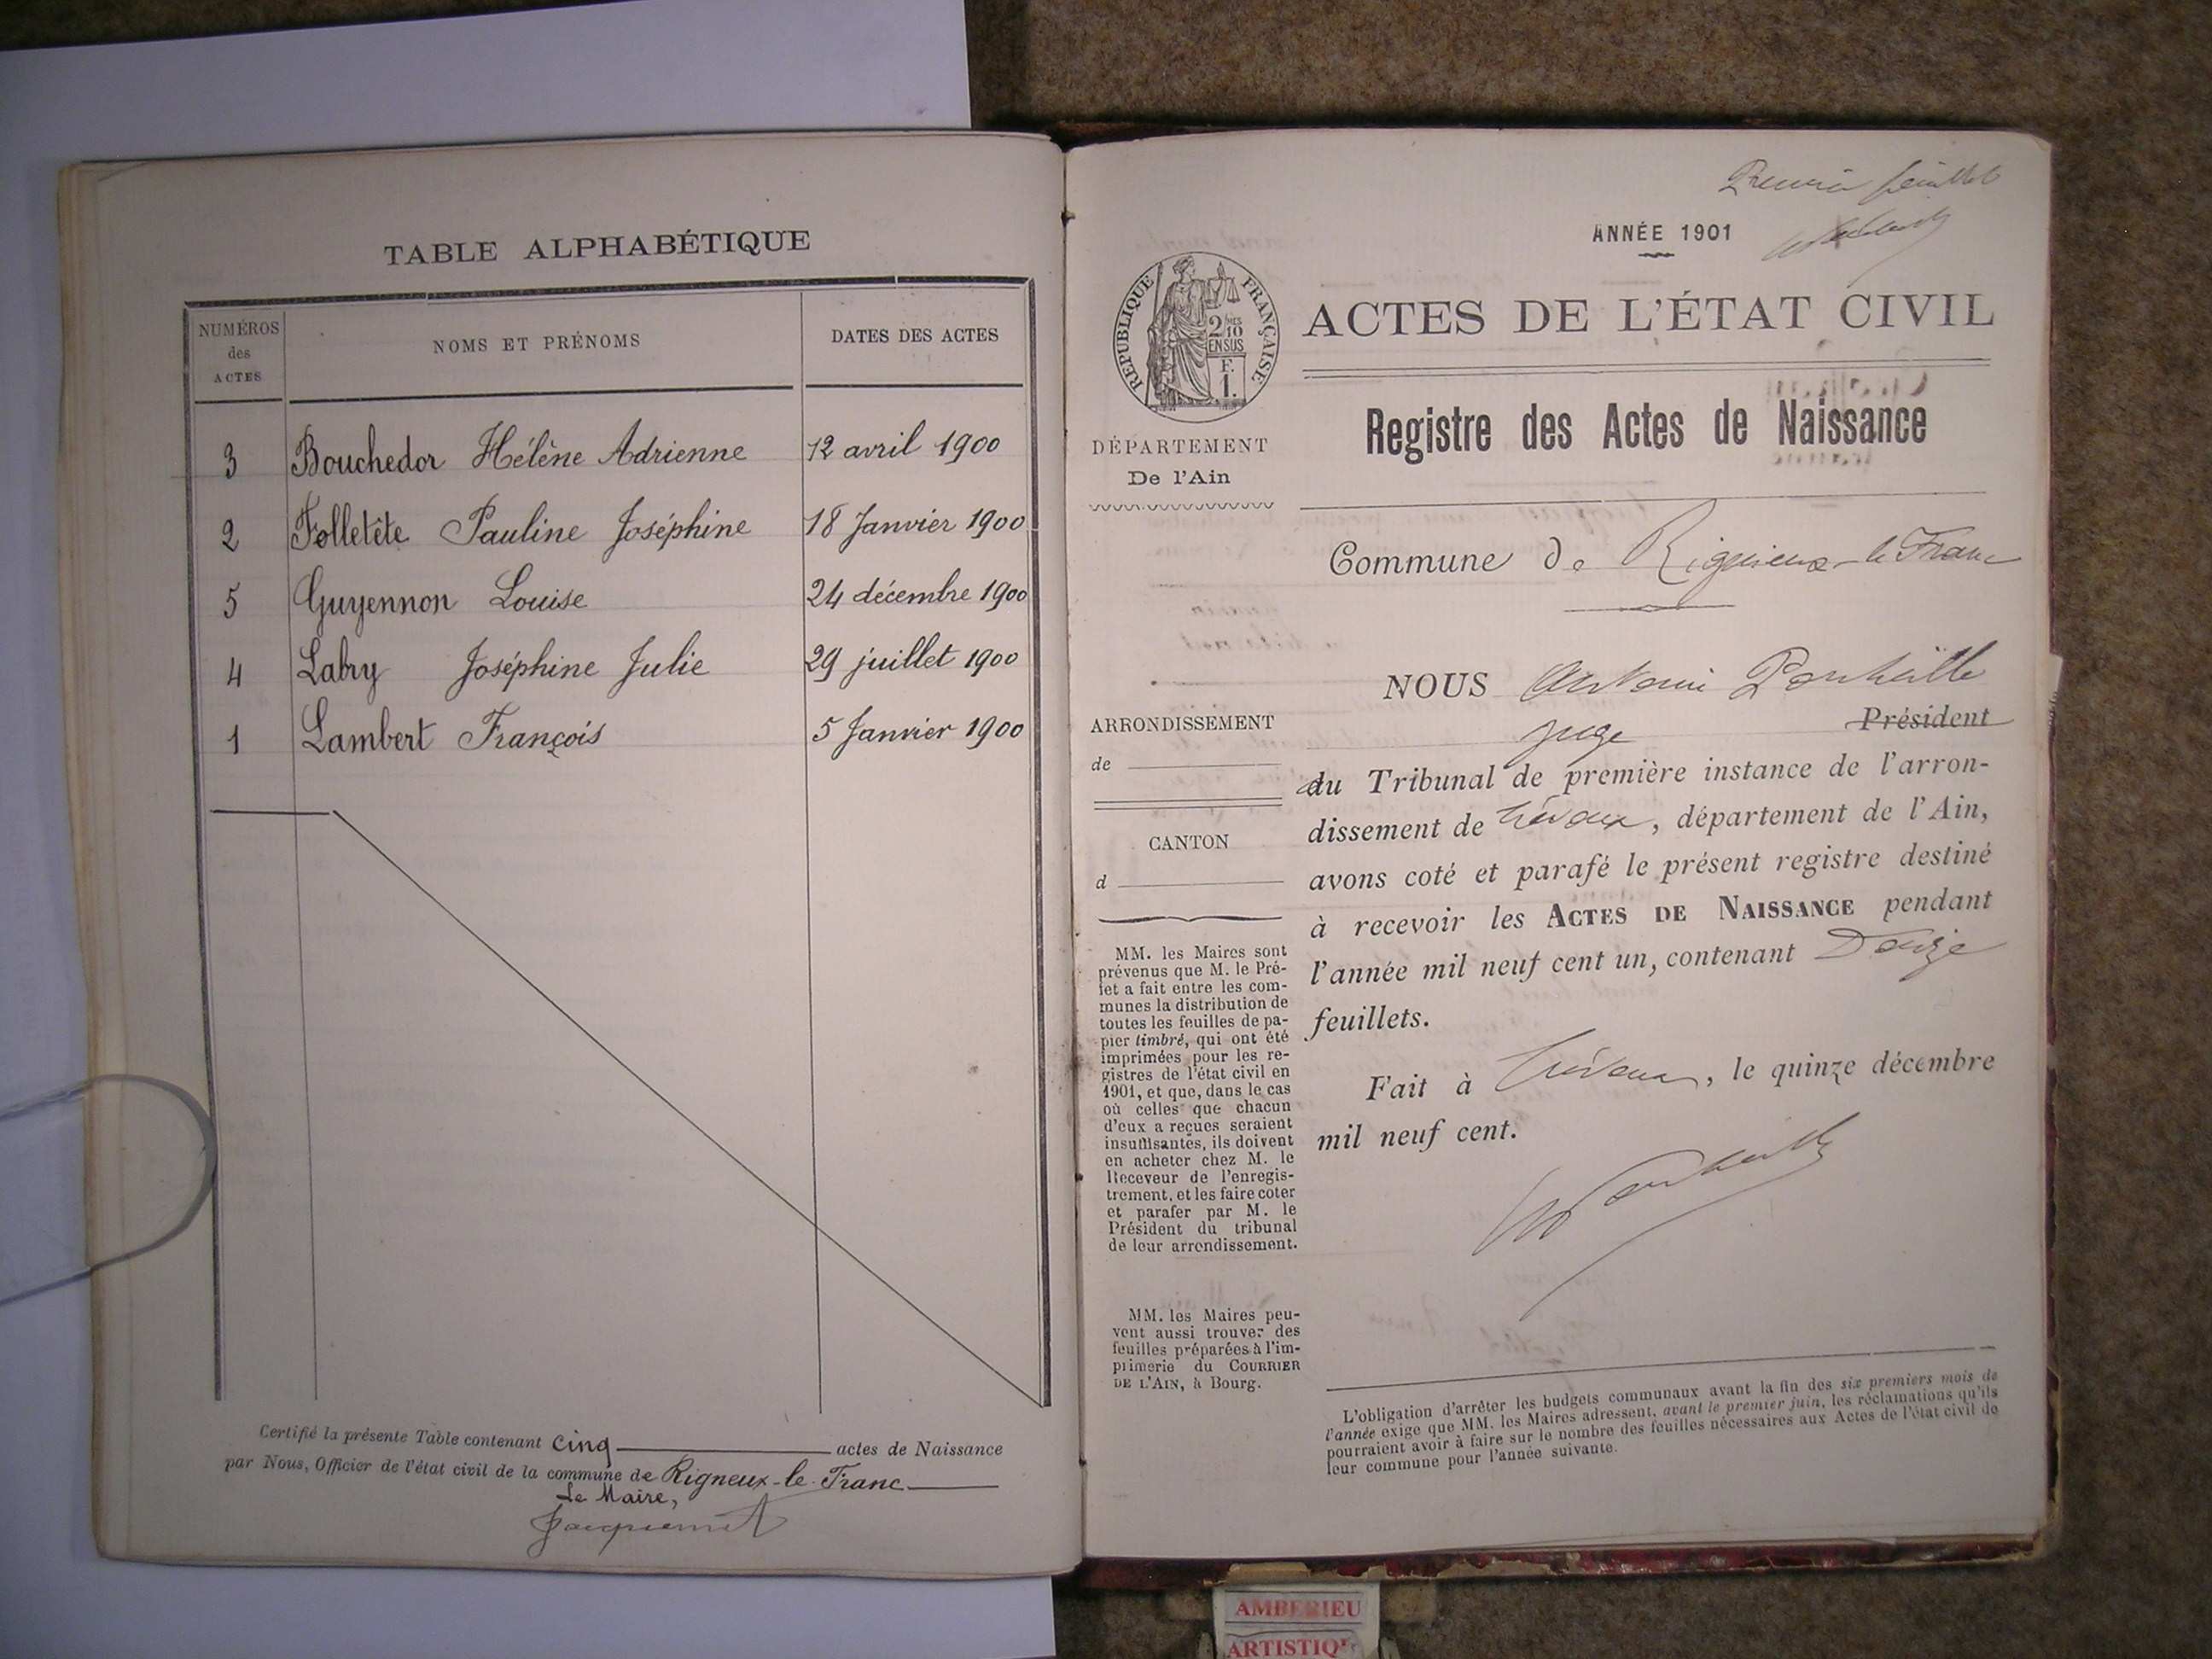 TABLE ALPHABÉTIQUE
NUMÉROS des ACTES
NOMS ET PRÉNOMS
DATES DES ACTES
3 Bouchedor Hélène Adrienne 12 avril 1900
2 Folletête Pauline Joséphine 18 Janvier 1900
5 Guyennon Louise 24 décembre 1900
4 Labry Joséphine Julie 29 juillet 1900
1 Lambert François 5 Janvier 1900
Certifié la présente Table contenant cinq actes de Naissance
par Nous, Officier de l'état civil de la commune de Rigneux-le-Franc
Le Maire,
Jacquemet
Premier feuillet
ANNÉE 1901
RÉPUBLIQUE FRANÇAISE
2 MES
10
EN SUS
F.
1.
ACTES DE L'ÉTAT CIVIL
Registre des Actes de Naissance
DÉPARTEMENT
De l'Ain
Commune de Rignieux-le-Franc
NOUS Antonin
juge Président
du Tribunal de première instance de l'arron-
dissement de Trévoux, département de l'Ain,
avons coté et parafé le présent registre destiné
à recevoir les ACTES DE NAISSANCE pendant
l'année mil neuf cent un, contenant Douze
feuillets.
Fait à Trévoux, le quinze décembre
mil neuf cent.
ARRONDISSEMENT
de
CANTON
d
MM. les Maires sont
prévenus que M. le Pré-
fet a fait entre les com-
munes la distribution de
toutes les feuilles de pa-
pier timbré, qui ont été
imprimées pour les re-
gistres de l'état civil en
1901, et que, dans le cas
où celles que chacun
d'eux a reçues seraient
insuffisantes, ils doivent
en acheter chez M. le
Receveur de l'enregis-
trement, et les faire coter
et parafer par M. le
Président du tribunal
de leur arrondissement.
MM. les Maires peu-
vent aussi trouver des
feuilles préparées à l'im-
primerie du COURRIER
DE L'AIN, à Bourg.
L'obligation d'arrêter les budgets communaux avant la fin des six premiers mois de
l'année exige que MM. les Maires adressent, avant le premier juin, les réclamations qu'ils
pourraient avoir à faire sur le nombre des feuilles nécessaires aux Actes de l'état civil de
leur commune pour l'année suivante.
AMBERIEU
ARTISTIQ